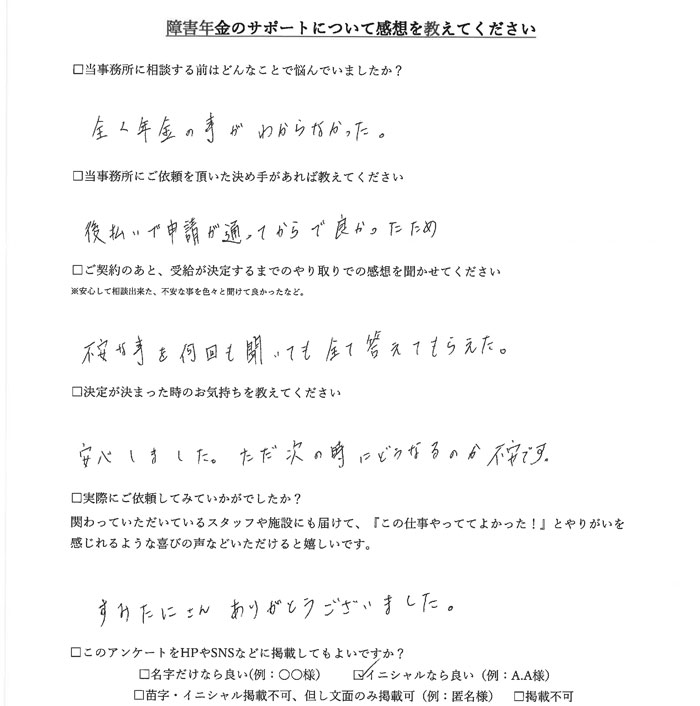 障害年金のサポートについて感想を教えてください
□当事務所に相談する前はどんなことで悩んでいましたか？
全く年金の事がわからなかった。
□当事務所にご依頼を頂いた決め手があれば教えてください
後払いで申請が通ってからで良かったため
□ご契約のあと、受給が決定するまでのやり取りでの感想を聞かせてください
※安心して相談出来た、不安な事を色々と聞けて良かったなど。
不安な事を何回も聞いても全て答えてもらえた。
□決定が決まった時のお気持ちを教えてください
安心しました。ただ次の時にどうなるのか不安です。
□実際にご依頼してみていかがでしたか？
関わっていただいているスタッフや施設にも届けて、『この仕事やっててよかった！』とやりがいを
感じれるような喜びの声などいただけると嬉しいです。
すみたにさん ありがとうございました。
□このアンケートをHPやSNSなどに掲載してもよいですか？
□名字だけなら良い(例：〇〇様) ☑イニシャルなら良い（例：A.A様）
□苗字・イニシャル掲載不可、但し文面のみ掲載可（例：匿名様） □掲載不可